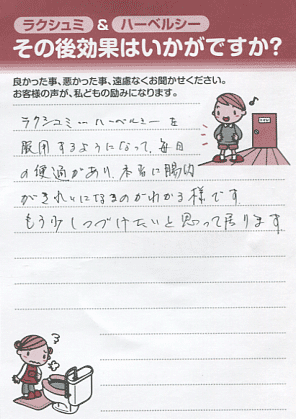 ラクシュミ & ハーベルシー
その後効果はいかがですか?
良かった事、悪かった事、遠慮なくお聞かせください。
お客様の声が、私どもの励みになります。
ラクシュミーハーベルシーを
服用するようになって、毎日
の便通があり、本当に腸内
がきれいになるのがわかる様です。
もう少しつづけたいと思って居ります